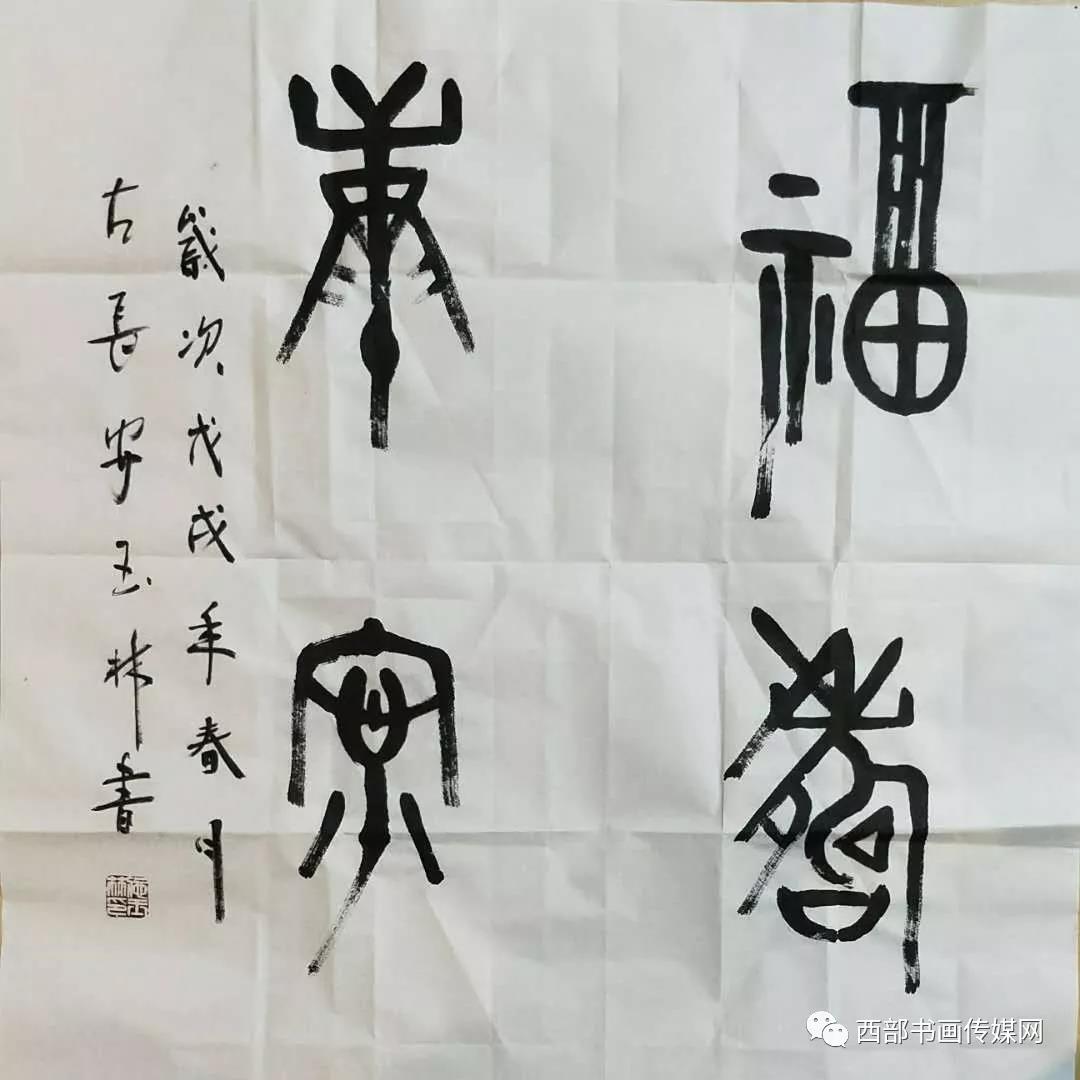 福壽
康寧
歲次戊戌年春月
古長安玉林書
張玉林印
西部书画传媒网